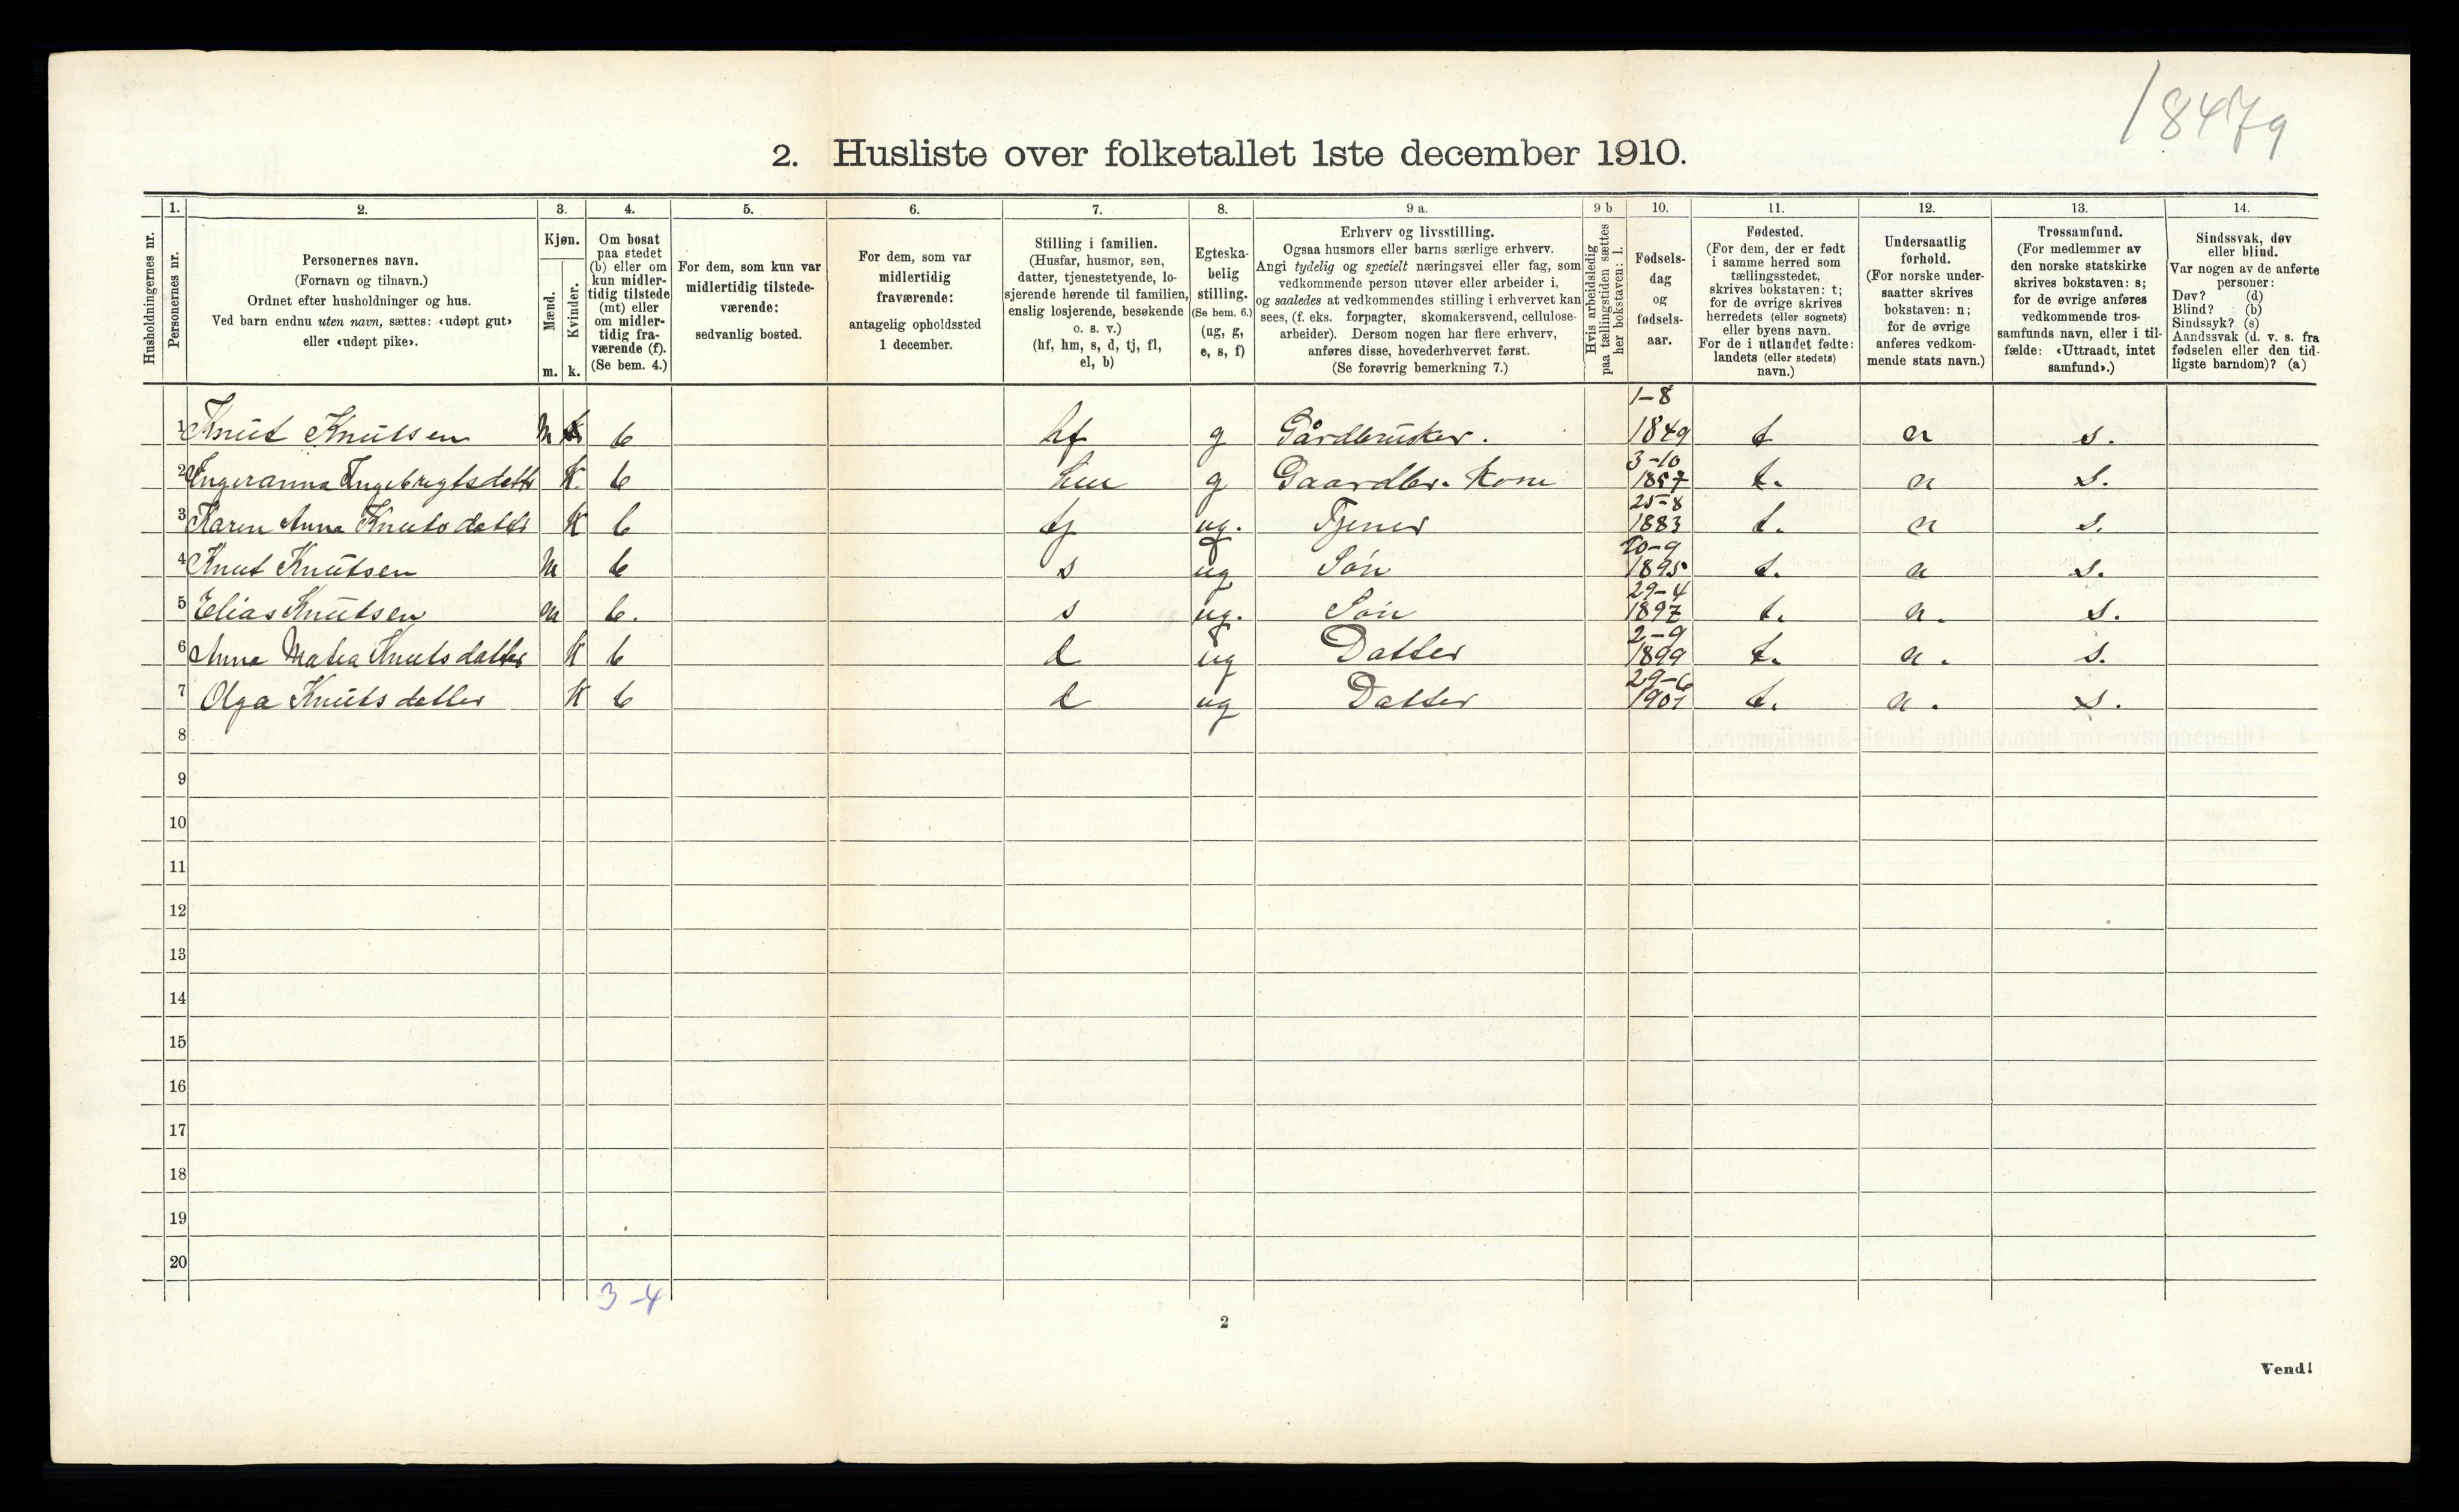 18479
2. Husliste over folketallet 1ste december 1910.
1. 2. 3. 4. 5. 6. 7. 8. 9 a. 9 b 10. 11. 12. 13. 14.
Husholdningernes nr.
Personernes nr.
Personernes navn.
(Fornavn og tilnavn.)
Ordnet efter husholdninger og hus.
Ved barn endnu uten navn, sættes: «udøpt gut»
eller «udøpt pike».
Kjøn.
Mænd.
Kvinder.
m. k.
Om bosat
paa stedet
(b) eller om
kun midler-
tidig tilstede
(mt) eller
om midler-
tidig fra-
værende (f).
(Se bem. 4.)
For dem, som kun var
midlertidig tilstede-
værende:
sedvanlig bosted.
For dem, som var
midlertidig
fraværende:
antagelig opholdssted
1 december.
Stilling i familien.
(Husfar, husmor, søn,
datter, tjenestetyende, lo-
sjerende hørende til familien,
enslig losjerende, besøkende
o. s. v.)
(hf, hm, s, d, tj, fl,
el, b)
Egteska-
belig
stilling.
(Se bem. 6.)
(ug, g,
e, s, f)
Erhverv og livsstilling.
Ogsaa husmors eller barns særlige erhverv.
Angi tydelig og specielt næringsvei eller fag, som
vedkommende person utøver eller arbeider i,
og saaledes at vedkommendes stilling i erhvervet kan
sees, (f. eks. forpagter, skomakersvend, cellulose-
arbeider). Dersom nogen har flere erhverv,
anføres disse, hovederhvervet først.
(Se forøvrig bemerkning 7.)
Hvis arbeidsledig
paa tællingstiden sættes
her bokstaven: l.
Fødsels-
dag
og
fødsels-
aar.
Fødested.
(For dem, der er født
i samme herred som
tællingsstedet,
skrives bokstaven: t;
for de øvrige skrives
herredets (eller sognets)
eller byens navn.
For de i utlandet fødte:
landets (eller stedets)
navn.)
Undersaatlig
forhold.
(For norske under-
saatter skrives
bokstaven: n;
for de øvrige
anføres vedkom-
mende stats navn.)
Trossamfund.
(For medlemmer av
den norske statskirke
skrives bokstaven: s;
for de øvrige anføres
vedkommende tros-
samfunds navn, eller i til-
fælde: «Uttraadt, intet
samfund».)
Sindssvak, døv
eller blind.
Var nogen av de anførte
personer:
Døv? (d)
Blind? (b)
Sindssyk? (s)
Aandssvak (d. v. s. fra
fødselen eller den tid-
ligste barndom)? (a)
1-8
1 Knut Knutsen M b hf g Gårdbruker. 1849 t n s.
3-10
2 Ingeranna Ingebrigtsdatter K. b hm g Gaardbr. Kone 1857 t. n s.
25-8
3 Karen Anna Knutsdatter K b tj ug. Tjener 1883 t. n s.
20-9
4 Knut Knutsen M b s ug Søn 1895 t. n s.
29-4
5 Elias Knutsen m b. s ug. Søn 1897 t. n. s.
2-9
6 Anna Matea Knutsdatter K b d ug Datter 1899 t. n. s.
29-6
7 Olga Knutsdatter K b d ug Datter 1901 t. n. s.
8
9
10
11
12
13
14
15
16
17
18
19
20
3-4
2
Vend!